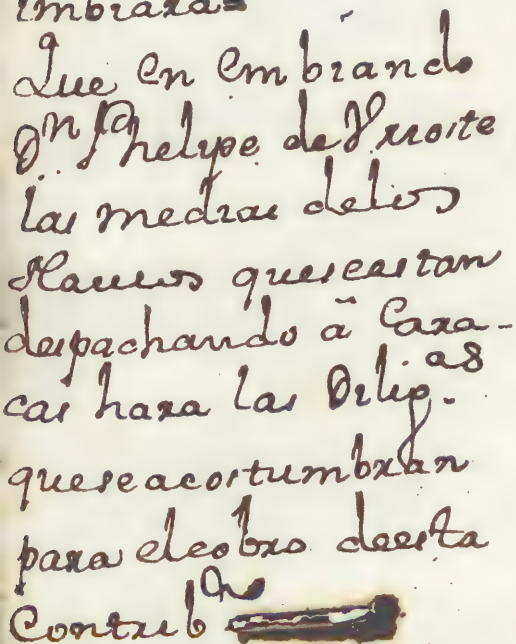 imbiara=
Que en embiando
Dn Phelipe de Urroste
las medias de los
Navios que se estan
despachando â Cara-
cas hara las Dilig.as
que se acostumbran
para el cobro de esta
Contrib.on